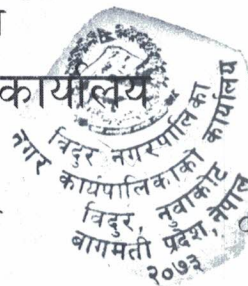 कार्यालय
विदुर नगरपालिका
नगर कार्यपालिकाको कार्यालय
विदुर, नुवाकोट
बागमती प्रदेश, नेपाल
२०७३